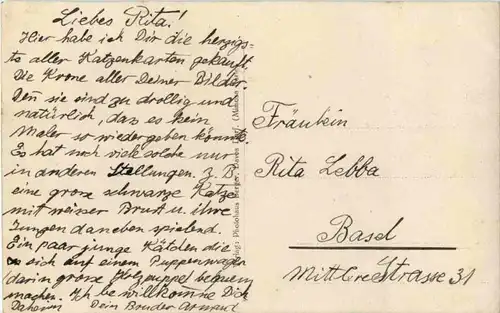 Liebes Rita!
Hier habe ich Dir die herzigs-
te aller Katzenkarten gekauft.
Die Krone aller Deiner Bilder.
Den sie sind zu drollig und
natürlich, das es kein
Maler so wiedergeben könnte.
Es hat noch viele solche nur
in anderen Stellungen. Z. B.
eine grose schwarze Katze
mit weiser Brust u. ihre
Jungen daneben spielend.
Ein paar junge Kätchen die
sich auf einem Puppenwagen
darin grose bequem
machen. Ich be willkomne Dich
Daheim Dein Bruder Armand
Fräulein
Rita Lebba
Basel
Mittlerestrasse 31